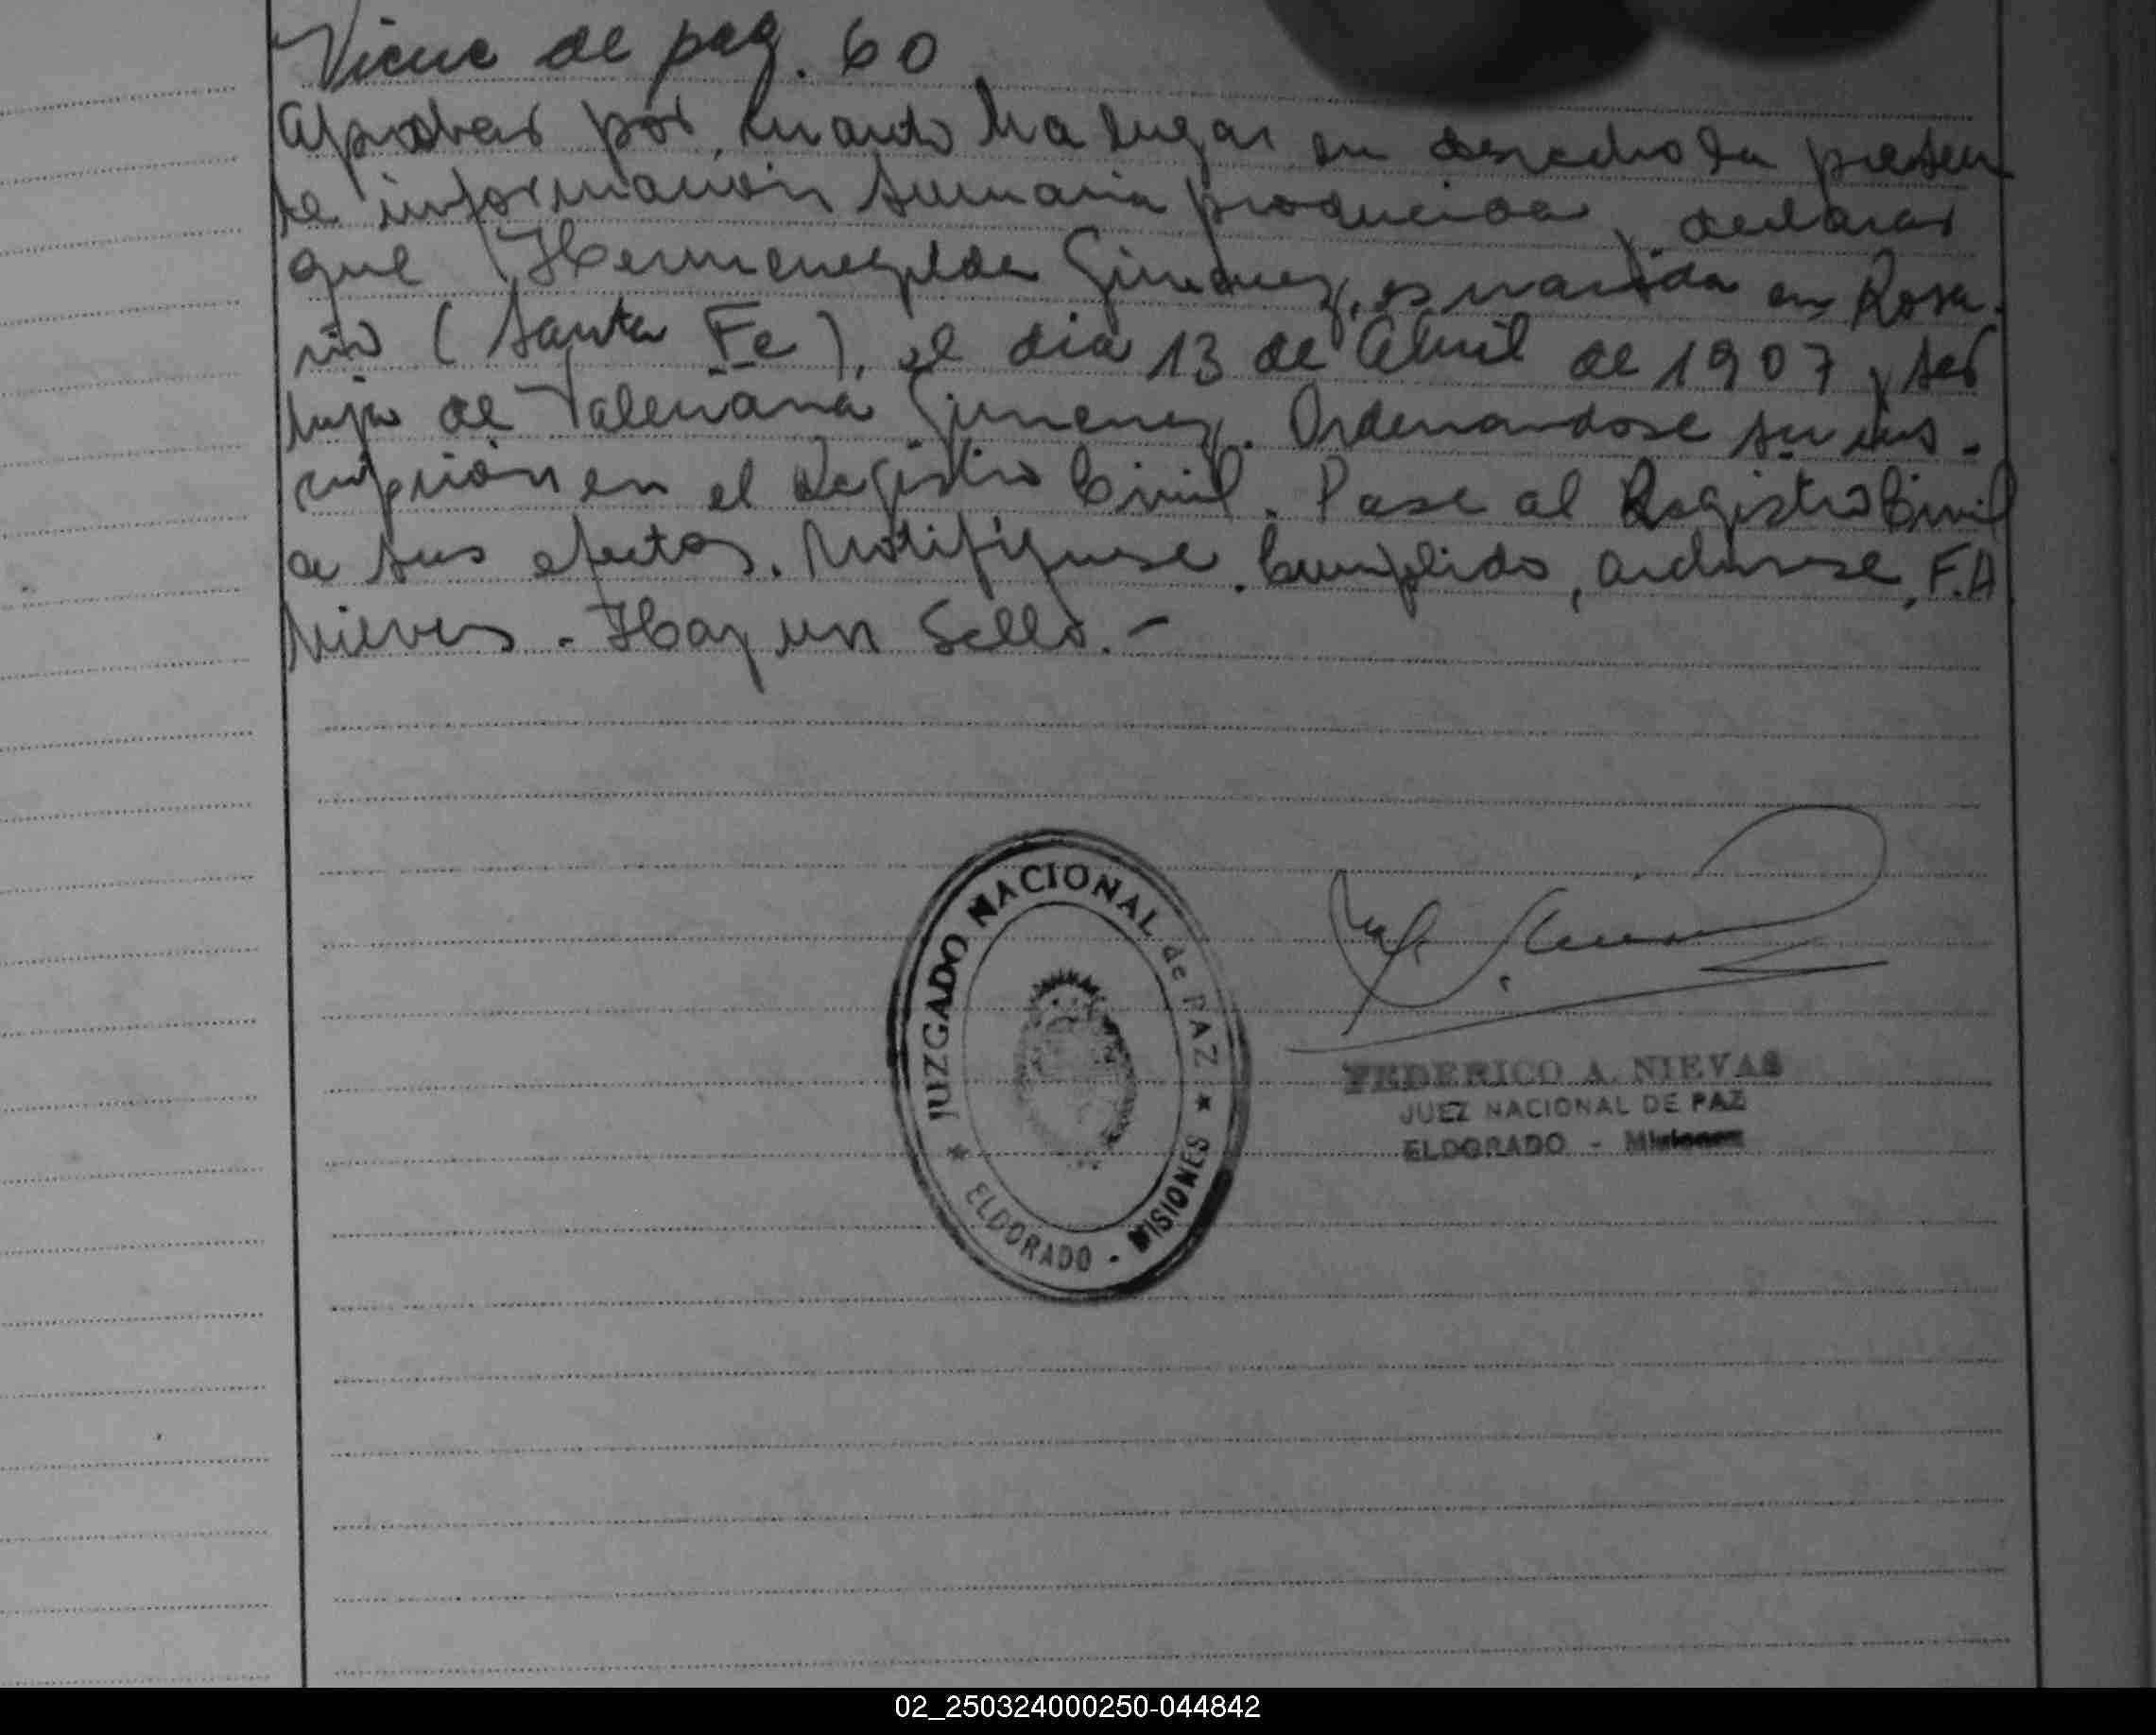 Viene de pag. 60
Aprobar por cuanto ha lugar en derecho la presen
te información sumaria producida y declarar
que Hermenegilda Gimenez, es nacida en Rosa-
rio (Santa Fe), el dia 13 de Abril de 1907 y ser
hija de Valeriana Gimenez. Ordenandose su ins-
cripción en el Registro Civil. Pase al Registro Civil
a sus efectos. Notifiquese. Cumplido, archivese, F.A
Nievas - Hay un Sello. -
JUZGADO NACIONAL de PAZ
ELDORADO - MISIONES
FEDERICO A. NIEVAS
JUEZ NACIONAL DE PAZ
ELDORADO - Misiones
02_250324000250-044842